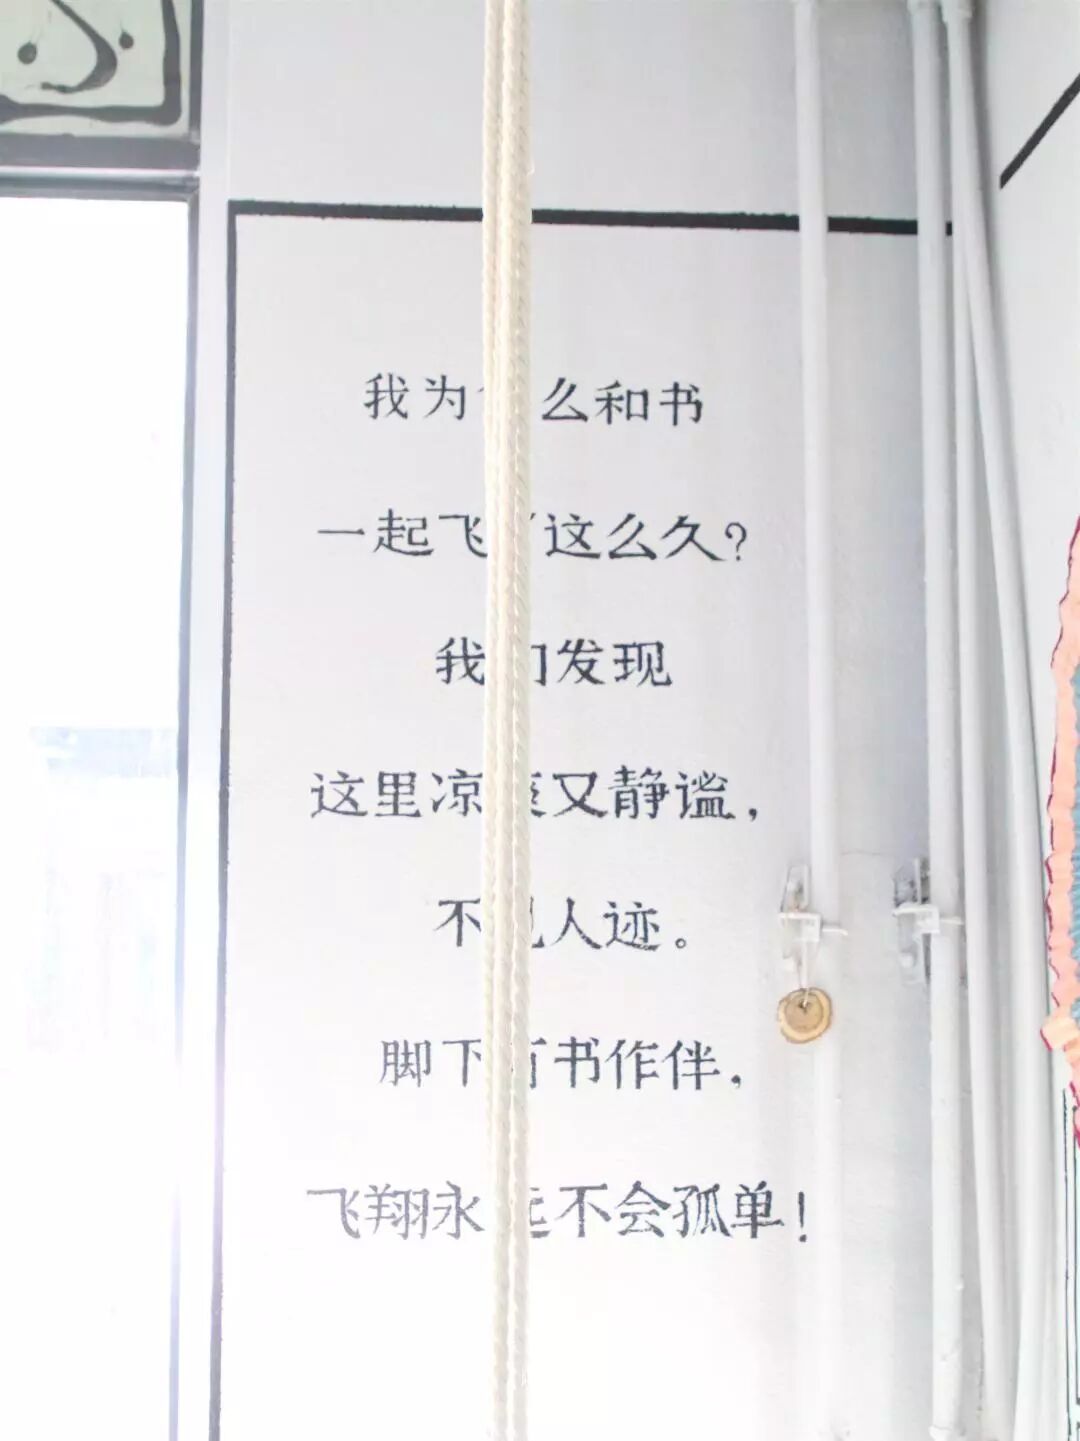 我为什么和书
一起飞了这么久?
我们发现
这里凉爽又静谧，
不见人迹。
脚下有书作伴，
飞翔永远不会孤单！